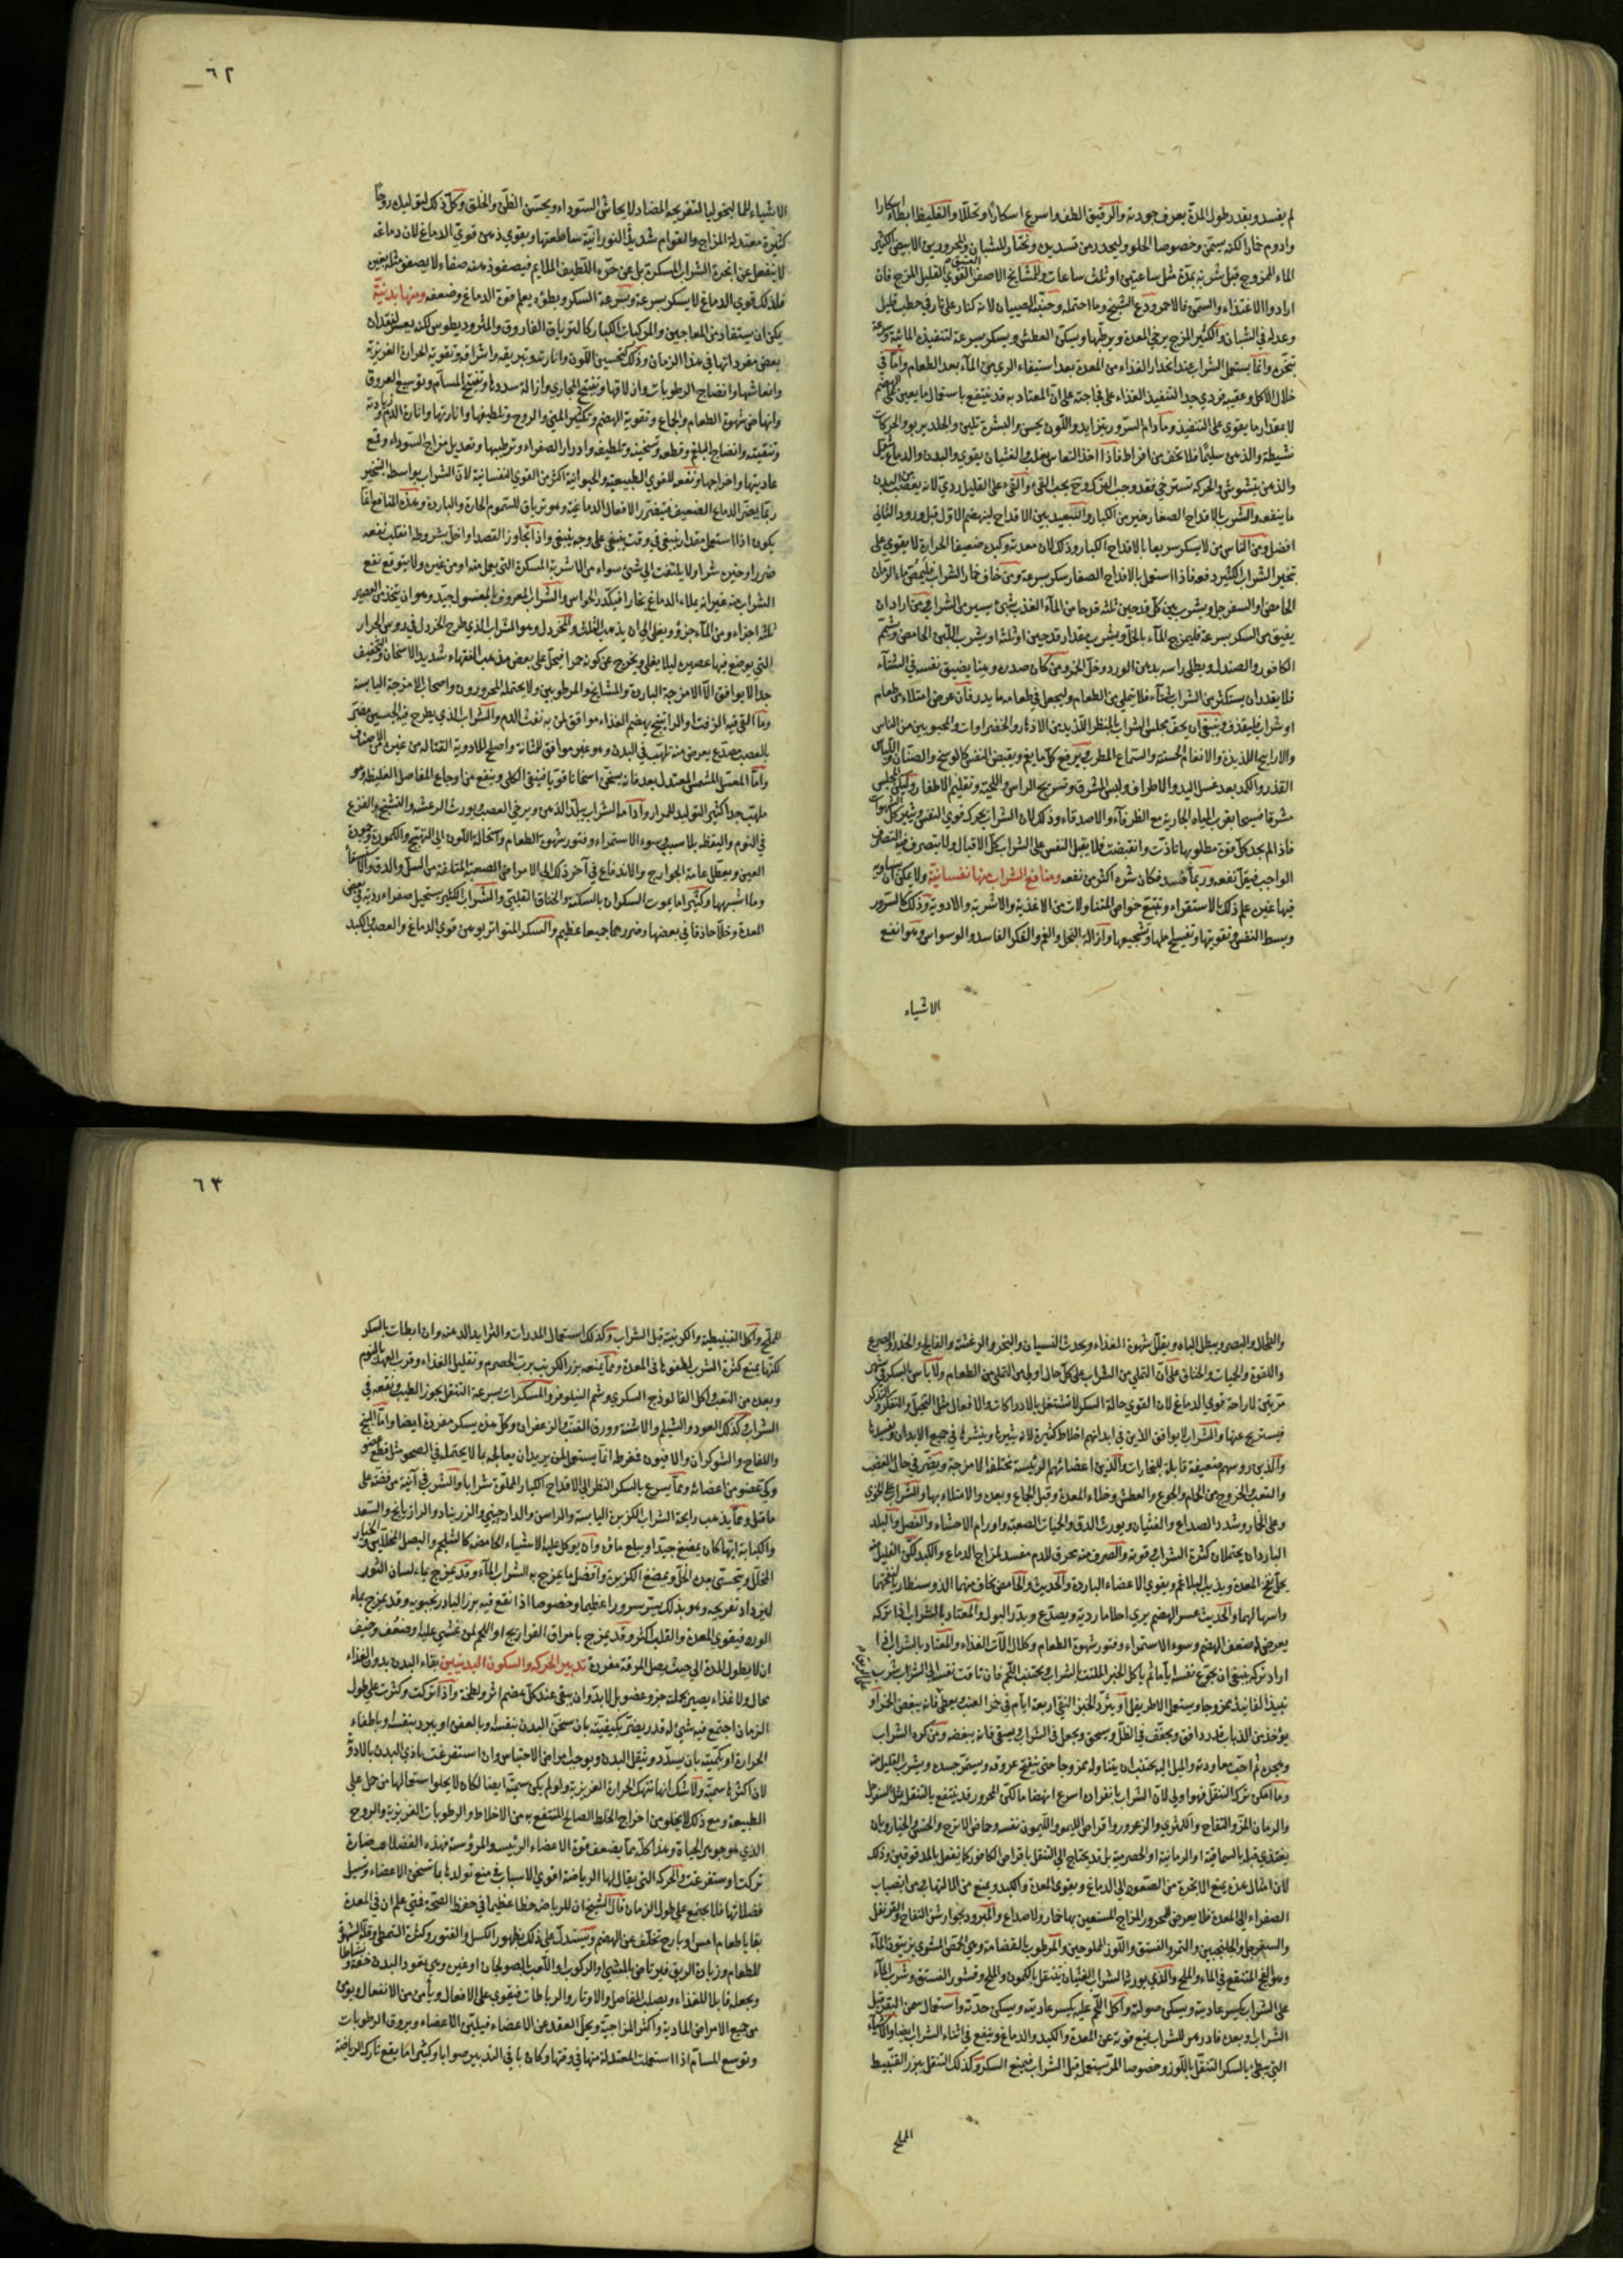 لم يفسد وبقدر طول المدة يعرف جودته والرقيق الطف واسرع اسكارا وتحللا والغليظ ابطاء اسكارا
وادوم خمارا لكنه يسمن وخصوصا الحلو وليحذر من تسديده ويختار للشبان والمحرورين الابيض الكثير
الماء الممزوج قبل شربه بمدة مثل ساعتين او ثلث ساعات وللمشايخ الاصفر العتيق القوي القليل المزج فان
ارادوا الاغتذاء والسمن فالاحمر ودع الشيخ وما احتمله وجنبه الصبيان لانه كنار على نار في حطب قليل
وعدله في الشبان والكثير المزج يرخي المعدة ويرطبها ويسكن العطش ويسكر بسرعة لتنفيذه المائية وسرعة
تبخره وانما يستعمل الشراب عند انحدار الغذاء من المعدة بعد استيفاء الري من الماء بعد الطعام واما في
خلال الاكل وعقيبه فردي جدا لتنفيذ الغذاء على فجاجته على ان المعتاد به قد ينتفع باستعمال ما يعين على الهضم
لا بمقدار ما يقوي على التنفيذ وما دام السرور يتزايد واللون يحسن والبشرة تلين والجلد يربو والحركات
نشيطة والذهن سليما فلا تخف من افراط فاذا اخذ النعاس يغلب والغثيان يقوي والبدن والدماغ يثقل
والذهن يتشوش والحركة تسترخي فقد وجب الترك وح يجب القيء والقيء على القليل ردي لانه يعصب من البدن
ما ينفعه والشرب بالاقداح الصغار خير من الكبار والتبعيد بين الاقداح لينهضم الاول قبل ورود الثاني
افضل ومن الناس من لا يسكر سريعا بالاقداح الكبار وذلك لان معدته وكبده ضعيفا الحرارة لا يقوي على
تبخير الشراب الكثير دفعة فاذا استعمل بالاقداح الصغار سكر بسرعة ومن خاف خمار الشراب فليمص ماء الرمان
الحامض والسفرجل ويشرب بين كل قدحين ثلثة قدحا من الماء العذب شيئ يسير من الشراب ومن اراد ان
يفيق من السكر بسرعة فليمزج الماء بالخل ويشرب مقدار قدحين او ثلثة او يشرب اللبن الحامض ويشم
الكافور والصندل ويطلى راسه بدهن الورد وخل الخمر ومن كان صدره وبدنا يضيق نفسه في الشتاء
فلا يقدر ان يستكثر من الشراب شتاء فلا يمتلئ من الطعام وليجعل في طعامه ما يدر فان عرض امتلاء من طعام
او شراب فليقذف وينبغي ان يحف مجلس الشراب بالمنظر اللذيذ من الازهار والخضراوات والمحبوبين من الناس
والارايح اللذيذة والانغام الحسنة والسماع المطرب ويرفع كل ما يغم ويقبض النفس كالوسخ والصنان واللباس
القذر والكمد بعد غسل اليد والاطراف ولبس المشرق وتسريح الراس واللحية وتقليم الاظفار وليكن المجلس
مشرقا فسيحا بقرب المياه الجارية مع الظرفاء والاصدقاء وذلك لان الشراب يحرك قوي النفس ويثير كل الشهوات
فاذا لم يجد كل قوة مطلوبها تأذت وانقبضت فلا يقبل النفس على الشراب كل الاقبال ولا يتصرف فيه التصرف
الواجب فيقل نفعه وربما فسد فكان شره اكثر من نفعه ومنافع الشراب منها نفسانية ولا يمكن ان يساويه
فيها غيره علم ذلك بالاستقراء وتتبع خواص المتناولات من الاغذية والاشربة والادوية وذلك كالسرور
وبسط النفس وتقويتها وتفسيح املها وتشجيعها وازالة البخل والغم والفكر الفاسد والوسواس وهو انفع
الاشياء
٦٢
الاشياء للماليخوليا لتفريحه المضاد لايحاش السوداء ويحسن الظن والخلق وكل ذلك لتوليده روحا
كثيرة معتدلة المزاج والقوام شديدة النورانية ساطعتها ويقوي ذهن قوي الدماغ لان دماغه
لا ينفعل عن ابخرة الشراب المسكرة بل عن حره اللطيف الملايم فيصفو ذهنه صفاء لا يصفو مثله بغيره
فلذلك قوي الدماغ لا يسكر بسرعة وبسرعة السكر وبطئه يعلم قوة الدماغ وضعفه ومنها بدنية
يمكن ان يستفاد من المعاجين والمركبات الكبار كالترياق الفاروق والمثروديطوس لكنه يعسر لفقدان
بعض مفرداتها في هذا الزمان وذلك كتحسين اللون وانارته وتبريقه واشراقه وتقوية الحرارة الغريزية
وانعاشها وانضاج الرطوبات وازلاقها وتفتيح المجاري وازالة سددها وتفتيح المسام وتوسيع العروق
وانهاض شهوة الطعام والجماع وتقوية الهضم وتكثير المني والروح وتلطيفها وانارتها وانارة الدم وزيادته
وتنقيته وانضاج البلغم وقطعه وتسخينه وتلطيفه وادرار الصفراء وترطيبها وتعديل مزاج السوداء وقمع
عاديتها واخراجها ونفعه للقوي الطبيعية والحيوانية اكثر من القوي النفسانية لان الشراب بواسطة التبخير
ربما يغير الدماغ الضعيف فيتضرر الافعال الدماغية وهو ترياق للسموم الحارة والباردة وهذه المنافع انما
يكون اذا استعمل مقدار ينبغي في وقت ينبغي على وجه ينبغي واذا تجاوز القصد او اخل بشروطه انقلبت نفعه
ضررا وخيره شرا ولا يلتفت الى شئ سواه من الاشربة المسكرة التي يعمل منه او من غيره ولا يتوقع نفع
الشراب منه غير انه يملاء الدماغ بخارا فيكدر الحواس والشراب المعروف بالمغسول جيد وهو ان يتخذ من العصير
ثلثة اجزاء ومن الماء جزو ويغلي الى ان يذهب الثلث والمخردل وهو الشراب الذي طرح الخردل في دوس الجرار
التي يوضع فيها عصيره ليلا يغلي ويخرج عن كونه خمرا فيحل على بعض مذهب الفقهاء شديد الاسخان والتجفيف
جدا لا يوافق الا الامزجة الباردة والمشايخ والمرطوبين ولا يحتمله المحرورون واصحاب الامزجة اليابسة
وما القي فيه الزفت او الراتينج يهضم الغذاء موافق لمن به نفث الدم والشراب الذي يطرح فيه الجبسين مضر
بالعصب مصدع يعرض منه تلهب في البدن وهو غير موافق للمثانة واصلح للادوية القتالة من غيره من الاصناف
واما المعسل المشمس المعتدل بعد فانه يسخن اسخانا قويا فينقي الكلى وينفع من اوجاع المفاصل الغليظة وهو
ملهب جدا كثير التوليد للمرار وادامة الشراب يبلد الذهن ويرخي العصب ويورث الرعشة والتشنج والفزع
في النوم واليقظة بلا سبب وسوء الاستمراء وفتور شهوة الطعام واستحالة اللون الى التهبج والكمودة وحمرة
العين ويعطل عامة الجوارح والاندفاع في آخر ذلك الى الامراض الصعبة المتلفة من السل والدق والاستسقاء
وما اشبهها وكثيرا ما يموت السكران بالسكتة والخناق القلبي والشراب الكثير يستحيل صفراء ردية في بعض
المعدة وخلا حاذقا في بعضها وضررهما جميعا عظيم والسكر المتواتر يوهن قوي الدماغ والعصب والكبد
والطحال والبصر ويبطل الباه ويقلل شهوة الغذاء ويحدث النسيان والبخر والرعشة والفالج والخدر والصرع
واللقوة والحميات والخناق على ان التملي من الشراب على كل حال اولى من التملي من الطعام ولا باس بالسكر في شهر
مرتين لاراحة قوي الدماغ لان القوي حالة السكر لا تشتغل بالادراكات والافعال مثل التخيل والتفكر والتذكر
فيستريح عنها والشراب لا يوافق الذين في ابدانهم اخلاط كثيرة لانه يثيرها وينشرها في جميع الابدان ويفسدها
والذين رؤسهم ضعيفة قابلة للبخارات والذين اعضائهم الرئيسة مختلفة الامزجة ويضر في حال الغضب
والتعب والخروج من الحمام والجوع والعطش وخلاء المعدة وقبل الجماع وبعده والامتلاء بها والشراب على الخوي
وعلى الخمار وشدد الصداع والغثيان ويورث الدق والحميات الصعبة واورام الاحشاء والفصل والبلد
الباردان يحتملان كثرة الشراب وقوته والصرف منه محرق للدم مفسد لمزاج الدماغ والكبد لكن القليل منه
يحلل نفخ المعدة ويذيب البلاغم ويقوي الاعضاء الباردة والحديث والحامض يخاف منهما الذوسنطاريا لنفخهما
واسهالهما والحديث عسر الهضم يري احلاما ردية ويصدع ويدر البول والمعتاد بالشراب اذا تركه
يعرض له ضعف الهضم وسوء الاستمراء وفتور شهوة الطعام وكلال آلات الغذاء والمعتاد بالشراب اذا
اراد تركه ينبغي ان يجوع نفسه ثم يأكل الخبز الملتت بالشراب ويجتنب اللحم فان تاقت نفسه الى الشراب شرب
نبيذ الفانيذ ممزوجا ويستعمل الاطريفل او يثرد الخبز النقي اربعة ايام في خمر العنب ويعطى فانه يبغض الخمر او
يؤخذ من الذباب قدر دانق ويجفف في الظل ويسحق ويجعل في الشراب ويسقى فانه يبغضه ومن كره الشراب
وهجره ثم احب معاودته والميل اليه يجتنب ان يتناوله ممزوجا حتى ينفتح عروقه ويستمر جسده ويشرب القليل منه
وما امكن ترك التنقل فهو اولى لان الشراب بانفراده اسرع انهضاما لكن المحرور قد ينتفع بالتنقل بمثل السفرجل
والرمان المز والتفاح والكمثري والزعرور واقراص الليمو والليمون نفسه وحماض الاترج والخس والخيار وبان
يغتذي قبله بالسماقية او الرمانية او الحصرمية بل قد يحتاج الى التنقل باقراص الكافور كما يفعل بالمدقوقين وذلك
لان امثال هذه يمنع الابخرة من الصعود الى الدماغ ويقوي المعدة والكبد ويمنع من الالتهاب من انصباب
الصفراء الى المعدة فلا يعرض للمحرور المزاج المستعين بها خمار ولا صداع والمبرود بجوارش التفاح والقرنفل
والسفرجل والجلنجبين والتمر والفستق واللوز المملوحين والمرطوب بالقضامة وهي الحمص المشوي بزيتون الماء
وهو الفج المنتقع في الماء والملح والذي يورثه الشراب الغثيان يتنقل بالكمون والملح وقشور الفستق وشرب الماء
على الشراب يكسر عاديته ويسكن صولته واكل اللحم عليه يكسر عاديته ويسكن حدته واستعمال سمن البقر قبل
الشراب وبعده فادزهر للشراب يمنع قوته عن المعدة والكبد والدماغ وينفع في اثناء الشراب ايضا والاشياء
التي يبطئ بالسكر التنقل باللوز وخصوصا المر يستعمل قبل الشراب فيمنع السكر وكذلك التنقل ببزر القنبيط
المملح
٦٣
المملح وآكل القنبيطية والكرنبية قبل الشراب وكذلك استعمال المدرات والثرايد الدهنة وان ابطات بالسكر
لكنها يمنع كثرة الشرب لطفوها في المعدة ومما يمنعه بزر الكرنب برب الحصرم وتقليل الغذاء وقرب العهد بالنوم
وبعده من التعب واكل الفالوذج السكري وشم النيلوفر والمسكرات بسرعة التنقل بجوز الطيب ونقعه في
الشراب وكذلك العود والشيلم والاشنة وورق القنب والزعفران وكل هذه يسكر مفردة ايضا واما البنج
واللفاح والشوكران والافيون فمفرطة انما يستعمل لمن يريد ان يعالج بما لا يحتمله في الصحو مثل قطع عضو
وكي عضو من اعضائه ومما يسرع بالسكر النظر الى الاقداح الكبار المملوة شرابا والشرب في آنية من فضة على
ما قيل ومما يذهب رايحة الشراب الكزبرة اليابسة والراسن والدارجيني والزرنباد والرازيانج والسعد
والكبابة ايها كان يمضغ جيدا ويبلع ماؤه وان يوكل عليه الاشياء الحامضة كالشلجم والبصل المخللين والخيار
المخلل ويتحسى بعده الخل ويمضغ الكزبرة وافضل ما يمزج به الشراب الماء وقد يمزج بماء لسان الثور
ليزداد تفريحه وهو بذلك يسر سرورا عظيما وخصوصا اذا نقع فيه بزر البادرنجبويه وقد يمزج بماء
الورد فيقوي المعدة والقلب اكثر وقد يمزج بامراق الفراريج او اللحم لمن غشي عليه او ضعف وخيف
ان لا يطول المدة الى حيث يصل المرقة مفردة تدبير الحركة والسكون البدنيين بقاء البدن بدون الغذاء
محال ولا غذاء يصير بجملته جزو عضو بل لا بد وان يبقى عند كل هضم اثر ولطخة واذا تركت وكثرت على طول
الزمان اجتمع فيه شيئ له قدر يضر بكيفيته بان سخن البدن بنفسه او بالعفن او يبرد بنفسه وباطفاء
الحرارة او بكميته بان يسدد ويثقل البدن ويوجب امراض الاحتباس وان استفرغت يأذي البدن بالادوية
لان اكثرها سمية ولا شك انها تنهك الحرارة الغريزية ولو لم يكن سمية ايضا لكان لا يخلو استعمالها من حمل على
الطبيعة ومع ذلك لا يخلو من اخراج الخلط الصالح المنتفع به من الاخلاط والرطوبات الغريزية والروح
الذي هو جوهر الحياة وهذا كله مما يضعف قوة الاعضاء الرئيسة والمرؤسة فهذه الفضلات ضارة
تركت او استفرغت والحركة التي يقال لها الرياضة اقوي الاسباب في منع تولدها بما تسخن الاعضاء وتسيل
فضلاتها فلا يجتمع على طول الزمان قال الشيخ ان للرياضة حظا عظيما في حفظ الصحة فمتى علم ان في المعدة
بقايا طعام امس او بارح تخلف عن الهضم ويستدل على ذلك بظهور الكسل والفتور وكثرة التمطي وقلة الشهوة
للطعام وزيادة الريق فيرتاض بالمشي او الركوب او اللعب بالصولجان او غيره وهي يعود البدن خفة ونشاطا
ويجعله قابلا للغذاء ويصلب المفاصل والاوتار والرباطات فيقوي على الافعال ويأمن من الانفعال ويؤمن
من جميع الامراض المادية واكثر المزاجية ويحل العقد عن الاعضاء فيلين الاعضاء ويروق الرطوبات
وتوسع المسام اذا استعملت المعتدلة منها في وقتها وكان باقي التدبير صوابا وكثيرا ما يقع تارك الرياضة